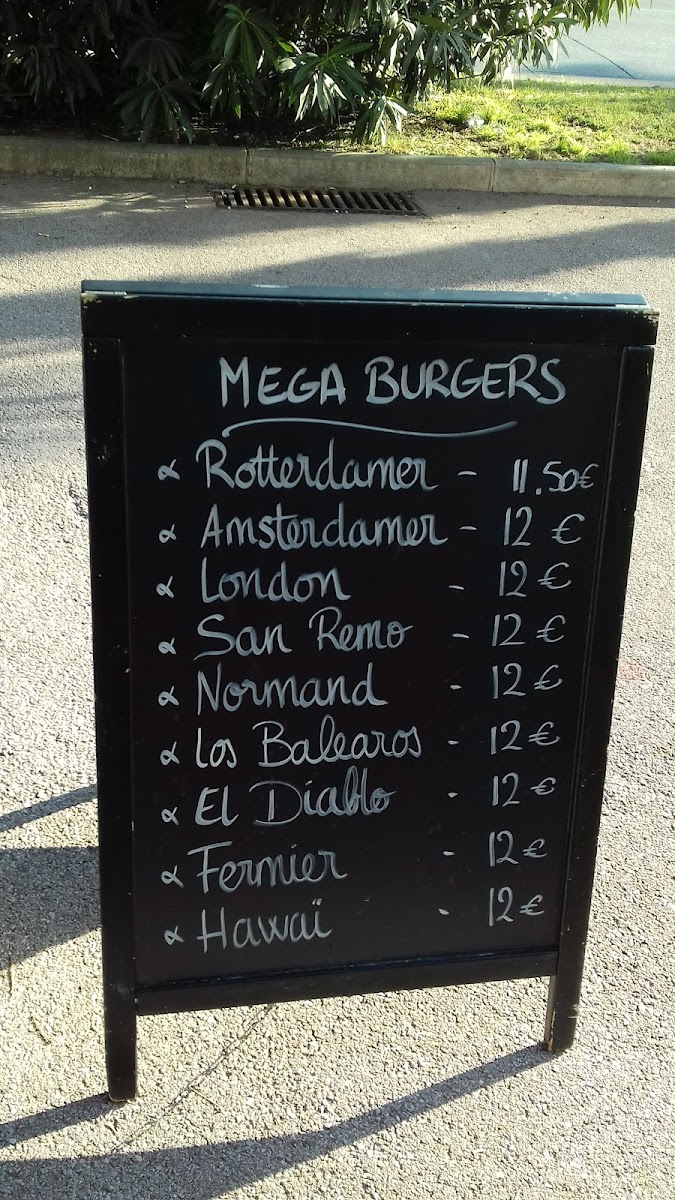 MEGA BURGERS
∝ Rotterdamer - 11.50€
∝ Amsterdamer - 12 €
∝ London - 12 €
∝ San Remo - 12 €
∝ Normand - 12 €
∝ Los Balearos - 12 €
∝ El Diablo - 12 €
∝ Fermier - 12 €
∝ Hawaï - 12 €